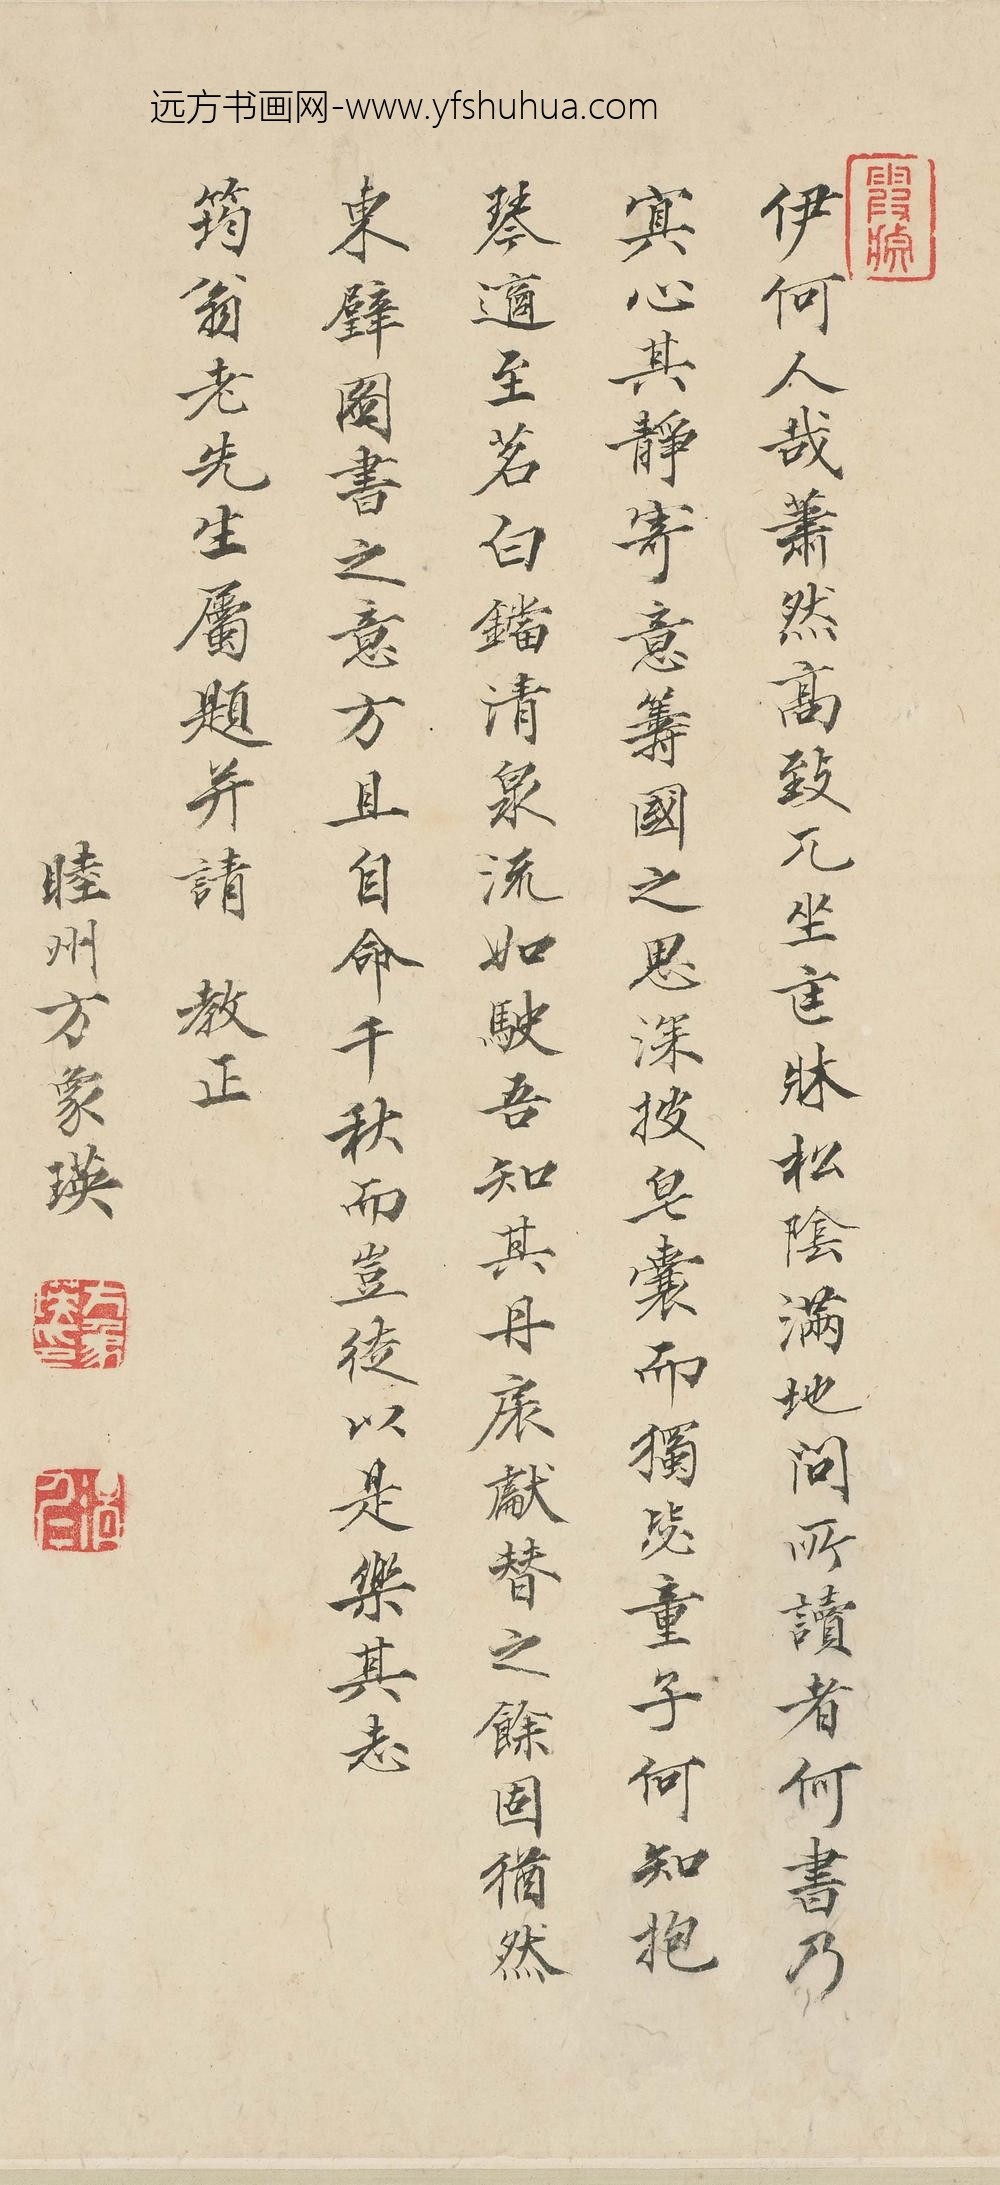 远方书画网-www.yfshuhua.com
伊何人哉蕭然高致兀坐匡牀松陰滿地問所讀者何書乃
寘心其靜寄意籌國之思深披皂囊而獨毖童子何知抱
琴適至茗白鐺清泉流如駛吾知其丹扆獻替之餘固猶然
東壁圖書之意方且自命千秋而豈徒以是樂其志
筠翁老先生屬題并請 教正
睦州方象瑛